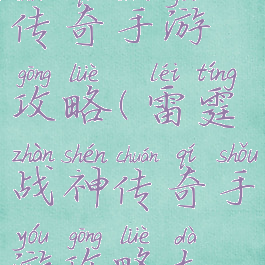 传奇手游
gōng lüè léi tíng
攻略(雷霆
zhàn shén chuán qí shǒu
战神传奇手
yóu gōng lüè dà
游攻略大